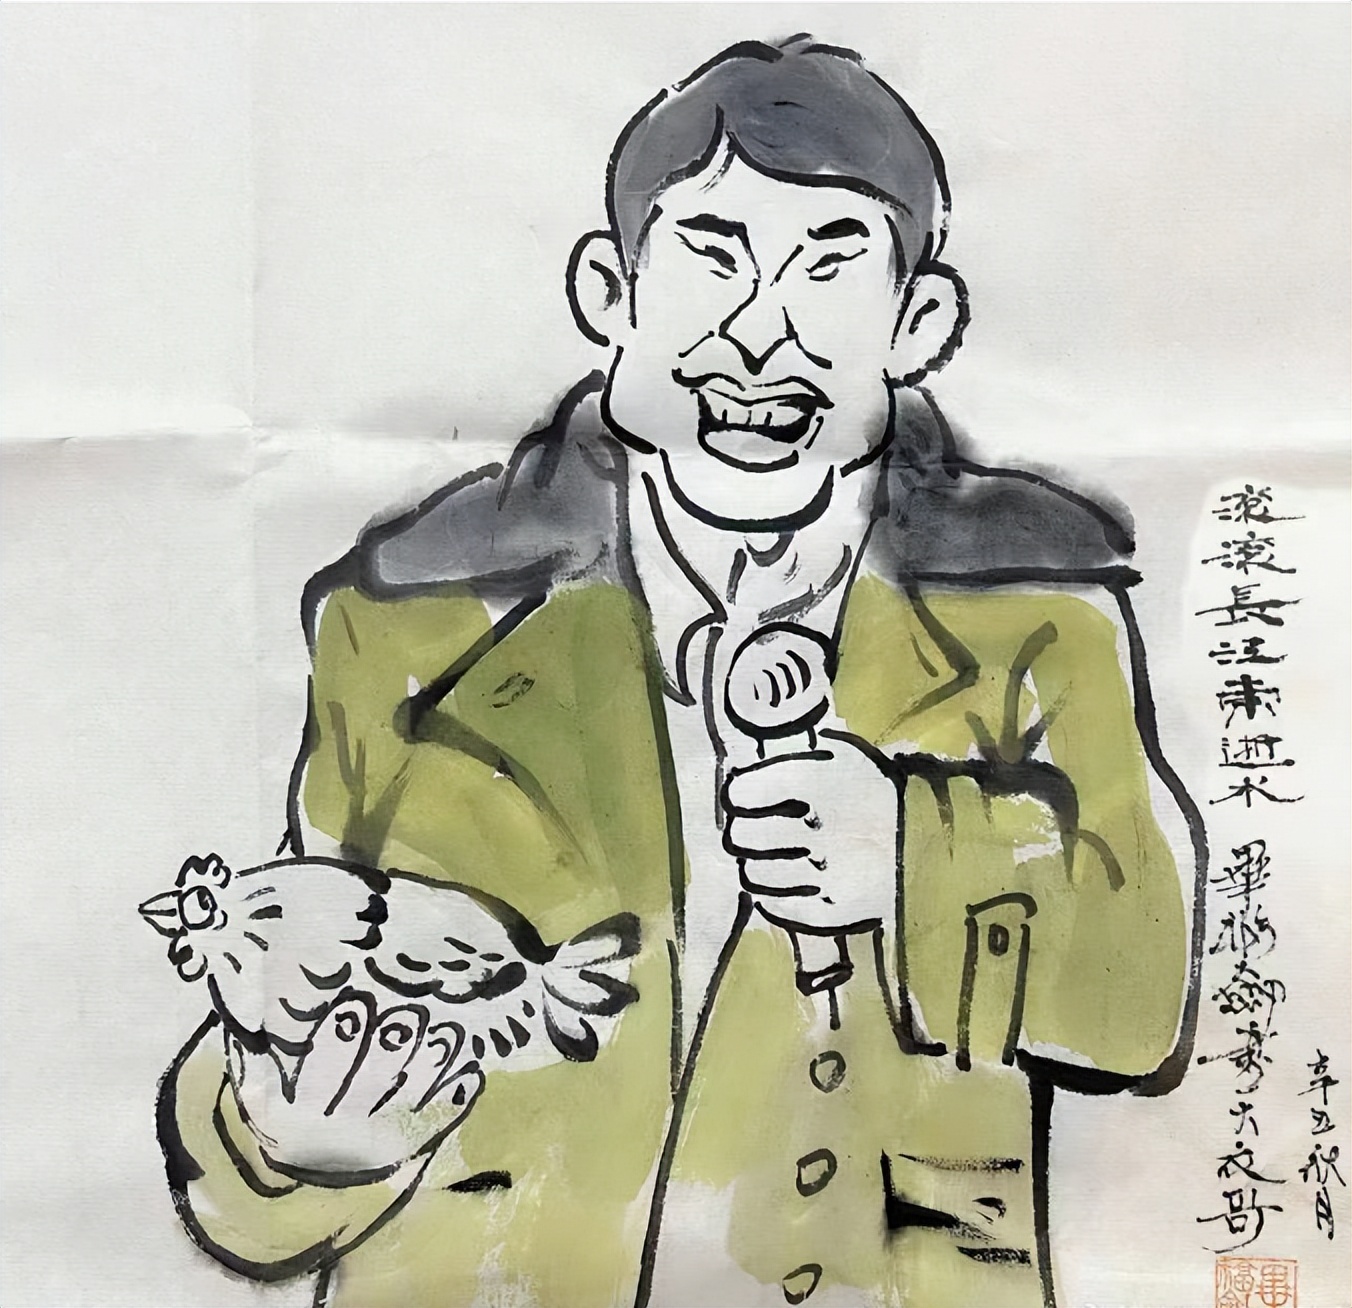 滚滚長江東逝水 畢福劍大衣哥
辛丑秋月